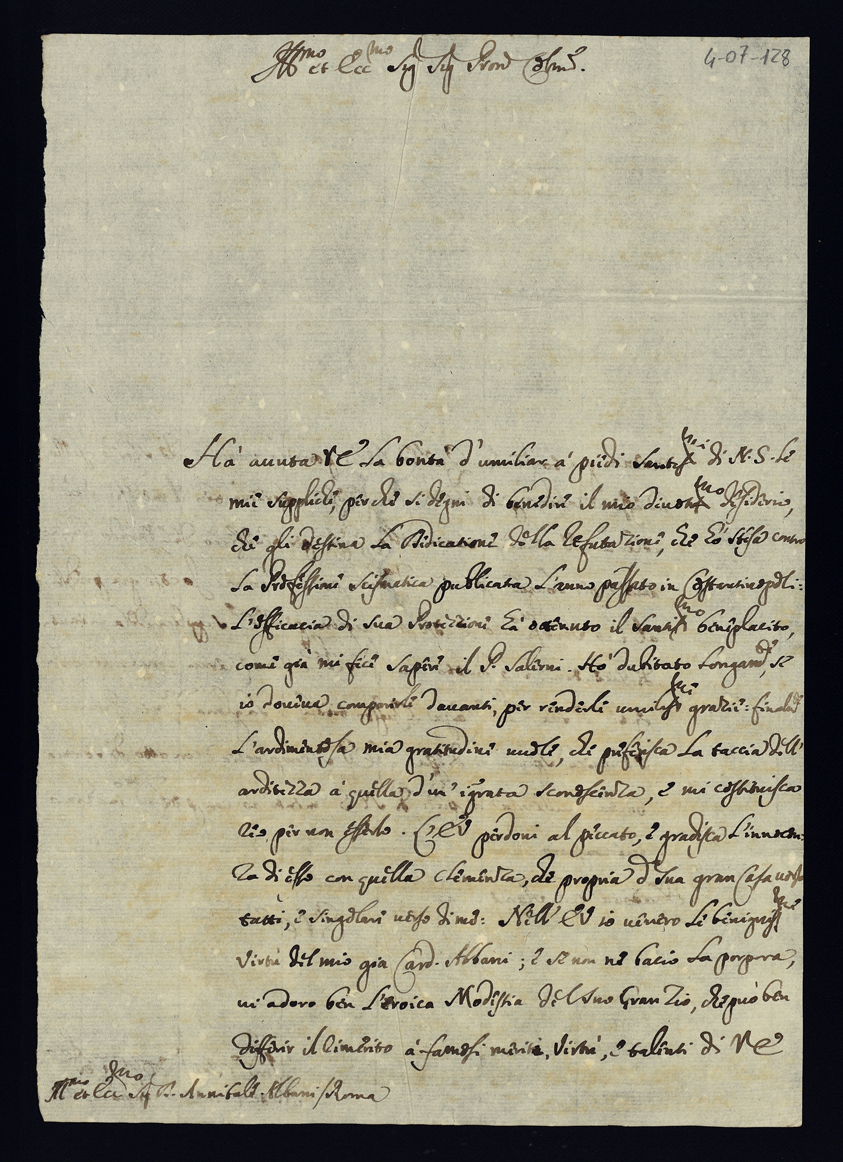 Ill.mo et Ecc.mo Sig.r Sig.r Pron Col.mo
4-07-128
Hà auuta VE La bontà d'umiliar à piedi Santiss.mi di N.S. Le
mie suppliche, perche si degni di benedire il mio diuotiss.mo desiderio,
che gli destina La Didicatione della refutazione, che hò stesa contro
La Professione Scismatica publicata L'anno passato in Costantinopoli:
L'efficacia di sua Protezione hà ottenuto il Santiss.mo beneplacito,
come già mi fece sapere il P. Salerni. Hò dubitato Longam.te, se
io doueua comparirle dauanti, per renderle umiliss.me grazie: finalm.te
L'ardimentosa mia gratitudine uuole, che preferisca La taccia dell'
arditezza à quella d'un' ingrata sconoscenza, e mi costituisca
reo per non esserlo. L'EV perdoni al peccato, e gradisca L'innocen:
za di esso con quella clemenza, che propria d sua gran Casa uerso
tutti, è singolare uerso di me: Nell'EV io uenero Le benigniss.me
Virtù del mio già Card. Albani; e se non ne bacio La porpora,
ui adoro ben L'eroica Modestia del suo Gran Zio, che può ben
differir il rimerito à famosi meriti, Virtù, e talenti di VE
Ill.mo et Ecc.mo Sig.r D. Annibale Albani / Roma